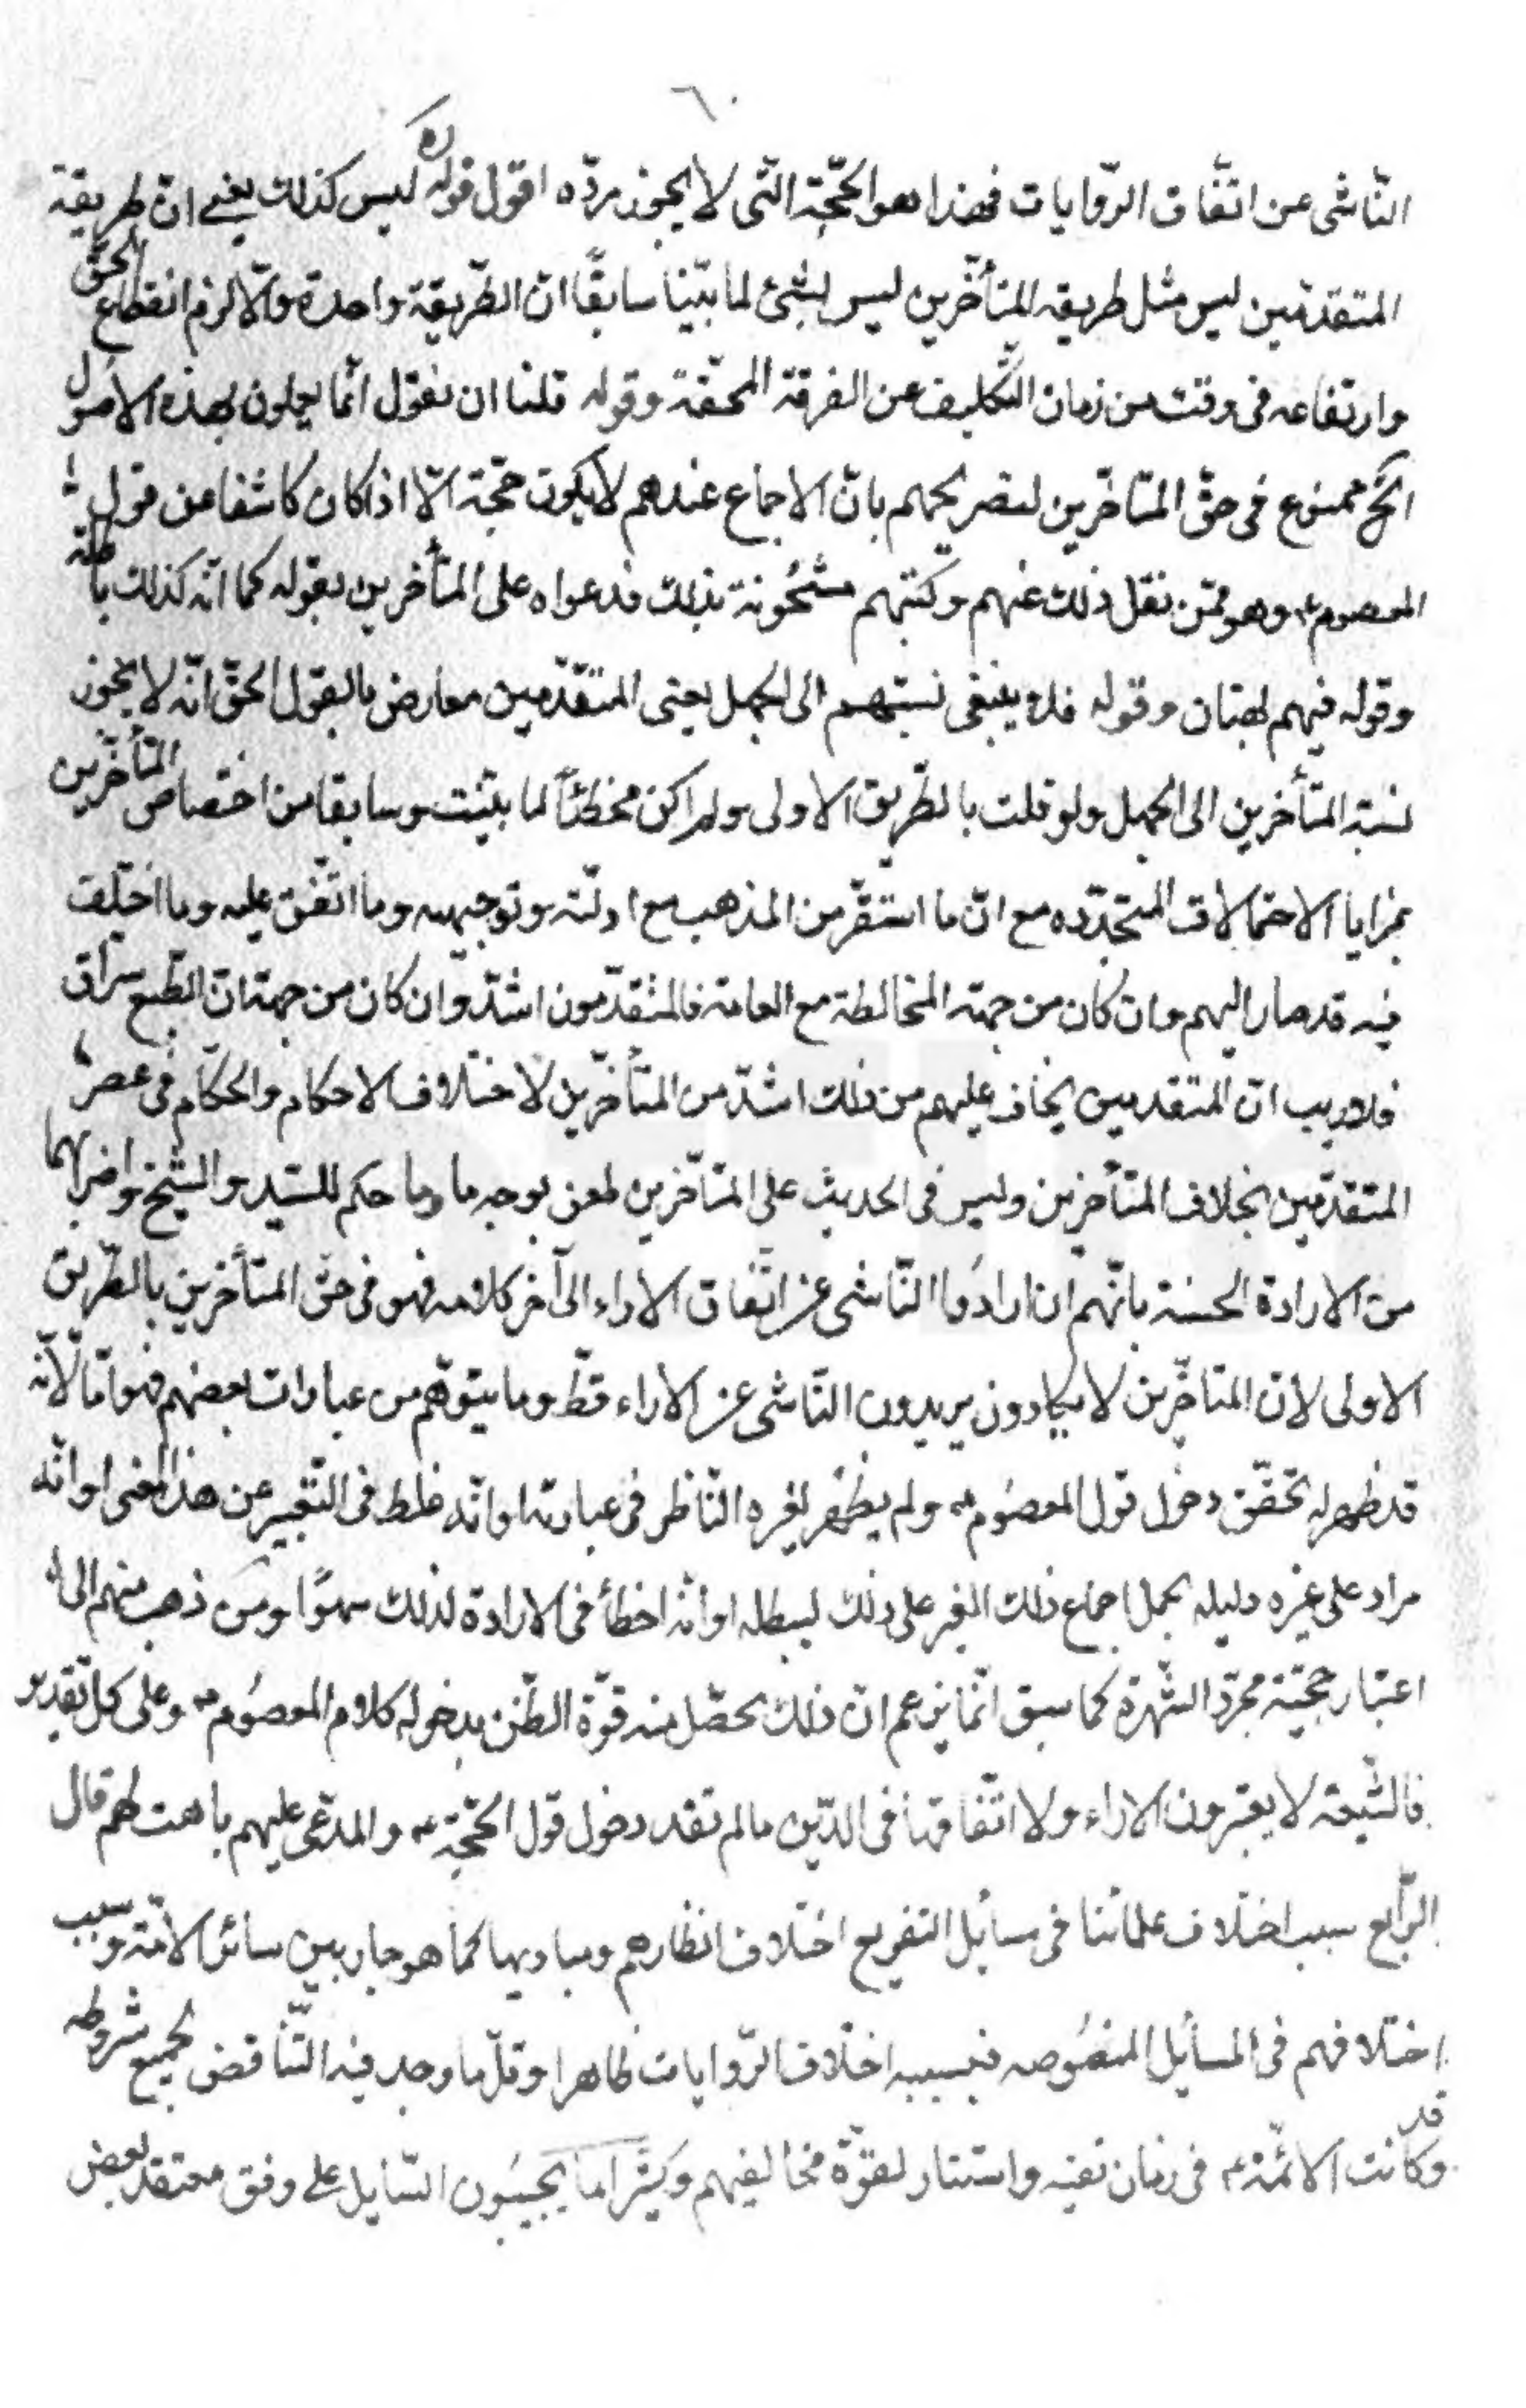 ٦٠
النّاشى عن اتّفاق الرّوايات فهذا هو الحجّة التّى لا يجوز ردّه اقول قوله ره ليس كذلك يعنى انّ طريقة
المتقدّمين ليس مثل طريقه المتأخّرين ليس بشئ لما بيّنا سابقًا انّ الطّريقة واحدة والّا لزم انقطاع الحقّ
وارتفاعه فى وقت من زمان التّكليف عن الفرقة المحقّة وقوله قلنا ان نقول انّما يعملون بهذه الاصول
الخ ممنوع فى حقّ المتاخّرين لتصريحهم بانّ الاجماع عندهم لا يكون حجّة الّا اذا كان كاشفا عن قول
المعصوم ع وهو ممّن نقل ذلك عنهم وكتبهم مشحُونة بذلك فدعواه على المتأخرين بقوله كما انّه كذلك باطلة
وقوله فيهم بهتان وقوله فلا ينبغى نسبتهم الى الجهل يعنى المتقدّمين معارض بالقول الحقّ انّه لا يجوز
نسبة المتأخرين الى الجهل ولو قلت بالطّريق الاولى ولم اكن مخطئًا لما بيّنت سابقا من اختصاص المتأخّرين
بمزايا الاحتمالات المتجدّده مع انّ ما استقرّ من المذهب مع ادلّته وتوجيهه وما اتّفق عليه وما اختلف
فيه قد صار اليهم وان كان من جهة المخالطة مع العامة فالمتقدّمون اشدّ وان كان من جهة انّ الطّبع سرّاق
فلا ريب انّ المتقدمين يخاف عليهم من ذلك اشدّ من المتأخّرين لاختلاف الاحكام والحكّام فى عصر
المتقدّمين بخلاف المتأخرين وليس فى الحديث على المتأخّرين طعن بوجه ما وما حكم للسّيد والشّيخ واضرابهما
من الارادة الحسنة بانّهم ان ارادُوا النّاشى عن اتّفاق الاراء الى آخر كلامه فهو فى حقّ المتأخرين بالطّريق
الاولى لانّ المتاخّرين لا يكادون يريدون النّاشى عن الاراء قطّ وما يتوهّم من عبارات بعضهم فهو امّا لانّه
قد ظهر له تحقّق دخول قول المعصُوم ع ولم يظهر لغيره النّاظر فى عبارته او انّه غلط فى التّعبير عن هذا المعنى او انّه
مراد على غيره دليله بحمل اجماع ذلك الغير على ذلك ليبطله او انّه اخطأ فى الارادة لذلك سهوًا ومن ذهب منهم الى
اعتبار حجيّة مجرّد الشّهرة كما سبق انّما يزعم انّ ذلك يحصّل منه قوّة الظّن بدخوله كلام المعصُوم ع وعلى كلّ تقدير
فالشّيعة لا يعتبرون الاراء ولا اتّفاقها فى الدّين ما لم تفد دخول قول الحجّة ع والمدّعى عليهم باهت لهم قال
الرّابع سبب اختلاف علمائنا فى مسائل التفريع اختلاف انظارهم ومباديها كما هو جار بين سائر الامّة وسبب
اختلافهم فى المسايل المنصُوصه فبسببه اختلاف الرّوايات ظاهرا وقلّ ما وجد فيه التّناقض بجميع شروطه
وقد كانت الائمّة ع فى زمان تقيه واستتار لقوّة مخالفيهم وكثيرًا ما يجيبُون السّايل على وفق معتقد بعض